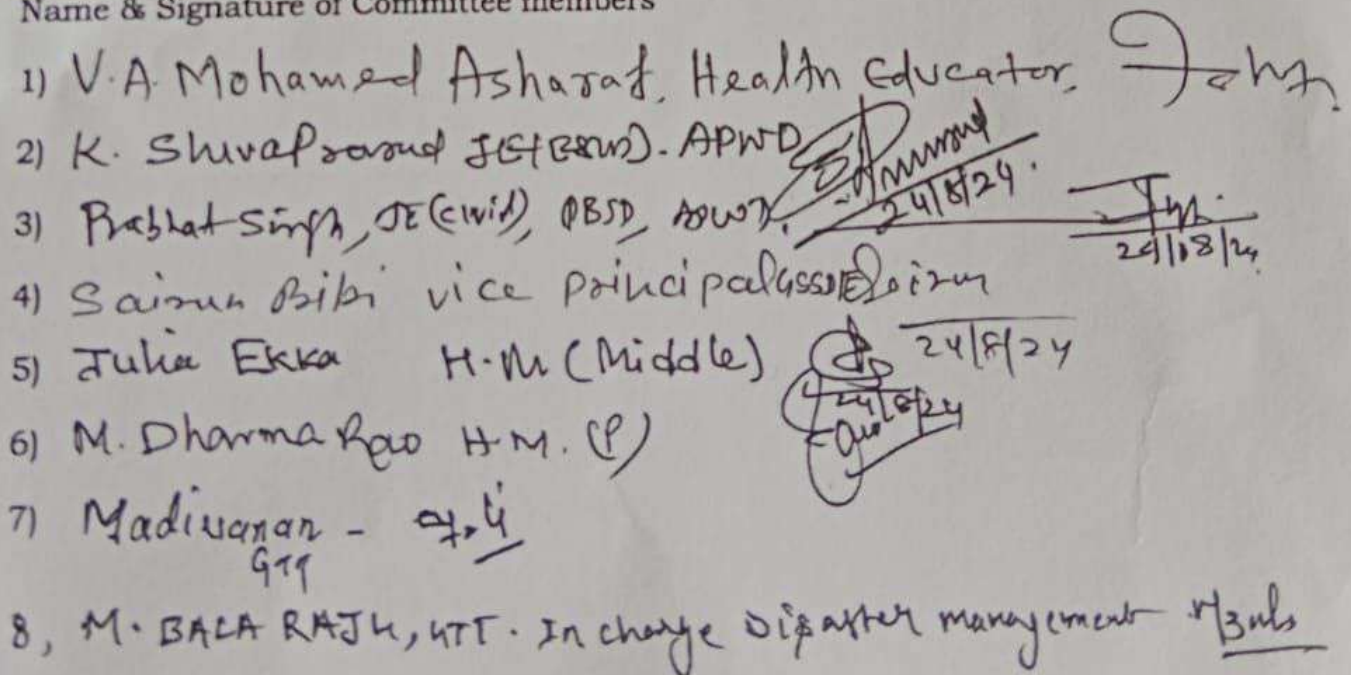 Name & Signature of Committee members
1) V.A. Mohamed Asharaf, Health Educator,
2) K. ShivaPrasad JE(E&M). APWD
24/8/24.
3) Prabhat Singh, JE (Civil), PBSD, APWD.
24/08/24
4) Sairun Bibi vice principal GSSS
5) Julia Ekka H.M (Middle)
24/8/24
24/8/24
6) M. Dharma Rao H.M. (P)
7) Madivanan -
GTT
8, M. BALA RAJU, GTT. In charge Disaster management